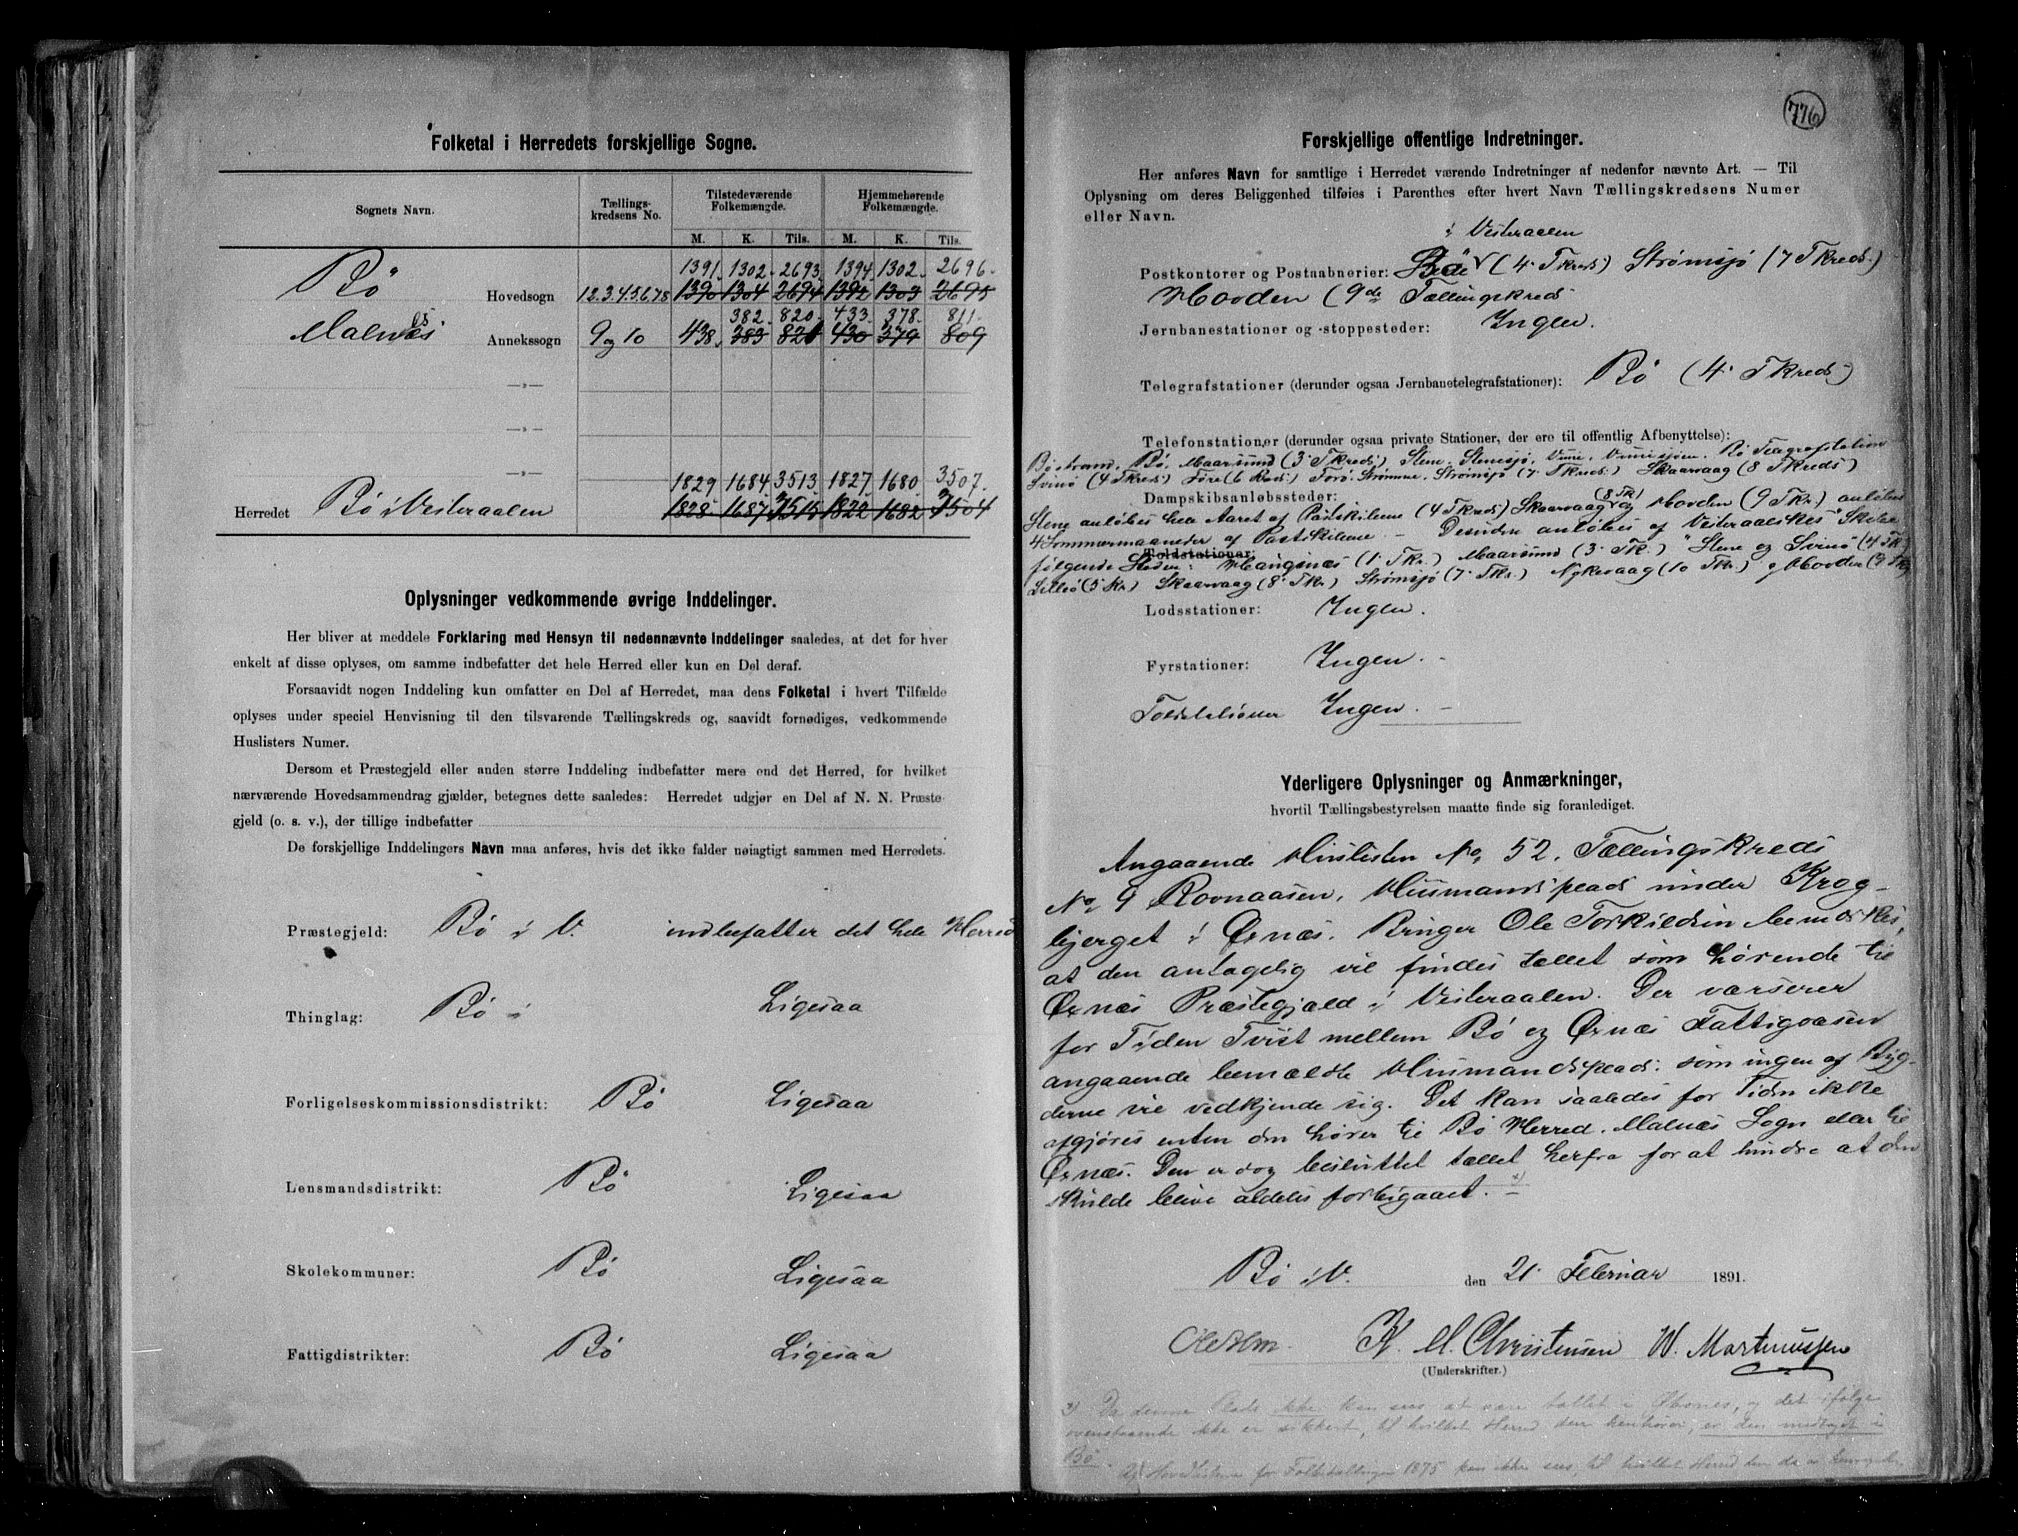 Folketal i Herredets forskjellige Sogne.
Sognets Navn. Tællings-kredsens No. Tilstedeværende Folkemængde. Hjemmehørende Folkemængde.
M. K. Tils. M. K. Tils.
1391. 1302. 2693. 1394. 1302. 2696.
Bö Hovedsogn 1.2.3.4.5.6.7.8 1390 1304 2694 1392 1303 2695
382. 820. 433. 378. 811.
Malnæs Annekssogn 9 og 10 438. 383 821 430 379 809
-»-
-»-
-»-
1829 1684 3513 1827 1680 3507.
Herredet Bö i Vesteraalen 1828. 1687. 3515 1822 1682 3504
Oplysninger vedkommende øvrige Inddelinger.
Her bliver at meddele Forklaring med Hensyn til nedennævnte Inddelinger saaledes, at det for hver
enkelt af disse oplyses, om samme indbefatter det hele Herred eller kun en Del deraf.
Forsaavidt nogen Inddeling kun omfatter en Del af Herredet, maa dens Folketal i hvert Tilfælde
oplyses under speciel Henvisning til den tilsvarende Tællingskreds og, saavidt fornødiges, vedkommende
Huslisters Numer.
Dersom et Præstegjeld eller anden større Inddeling indbefatter mere end det Herred, for hvilket
nærværende Hovedsammendrag gjælder, betegnes dette saaledes: Herredet udgjør en Del af N. N. Præste-
gjeld (o. s. v.), der tillige indbefatter
De forskjellige Inddelingers Navn maa anføres, hvis det ikke falder nøiagtigt sammen med Herredets.
Præstegjeld: Bö i V. indbefatter det hele Herred
Thinglag: Bö i Ligesaa
Forligelseskommissionsdistrikt: Bö Ligesaa
Lensmandsdistrikt: Bö Ligesaa
Skolekommuner: Bö Ligesaa
Fattigdistrikter: Bö Ligesaa
776
Forskjellige offentlige Indretninger.
Her anføres Navn for samtlige i Herredet værende Indretninger af nedenfor nævnte Art. — Til
Oplysning om deres Beliggenhed tilføies i Parenthes efter hvert Navn Tællingskredsens Numer
eller Navn.
i Vesteraalen
Postkontorer og Postaabnerier: Bö (4. Tkreds) Strømsjø (7 Tkreds.)
Hovden (9de Tællingskreds
Jernbanestationer og -stoppesteder: Ingen.
Telegrafstationer (derunder ogsaa Jernbanetelegrafstationer): Bö (4. Tkreds)
Telefonstationer (derunder ogsaa private Stationer, der ere til offentlig Afbenyttelse):
Bø Maarsund (3. Tkreds) Stene, Stenesjø, Vinje, Bö
Svinø (4 Tkreds) Føre (6 Kreds) Strømsjø (7. Tkreds.) Skaarvaag (8 Tkreds)
Dampskibsanløbssteder: (8 Tk)
Stene anløbes hele Aaret af Postskibene (4 Tkreds) Skaarvaag og Hovden (9 Tkr) anløbes
4 Sommermaaneder af Postskibene – Desuden anløbes af Vesteraalskes Skibe
Toldstationer:
følgende Steder: (1. Tkr.) Maarsund (3. Tkr.) Stene og Svinø (4 Tk)
(5 Kr) Skaarvaag (8. Tkr) Strømsjø (7. Tkr.) Nykvaag (10 Tkr.) og Hovden (9 Tkr)
Lodsstationer: Ingen.
Fyrstationer: Ingen. –
Toldstationer Ingen. –
Yderligere Oplysninger og Anmærkninger,
hvortil Tællingsbestyrelsen maatte finde sig foranlediget.
Angaaende Huslisten No. 52, Tællingskreds
No. 9 Husmandsplads under Krog-
bjerget i Øxnæs. Bruger Ole Torkildsen bemærkes,
at den antagelig vil findes tællet som hørende til
Øxnæs Præstegjæld i Vesteraalen. Der værserer
for Tiden Tvist mellem Bö og Øxnæs Fattigvæsen
angaaende bemældte Husmandsplads: som ingen af Byg-
derne vil vedkjende sig. Det kan saaledes for Tiden ikke
afgjøres enten den hører til Bö Herred. Malnæs Sogn eller til
Øxnæs. Den er dog besluttet tællet herfra for at hindre at den
skulde blive aldeles forbigaaet. –
Bö i V. den 21. Februar 1891.
K. M. Christensen W. Martinussen
(Underskrifter.)
Da denne Plads ikke kan sees at være tællet i Øxnæs, og det ifølge
ovenstaaende ikke er sikkert, til hvilket Herred den henhører, er den medtaget i
Bö.
for Folketællingen 1875 kan ikke sees, til hvilket Herred den da